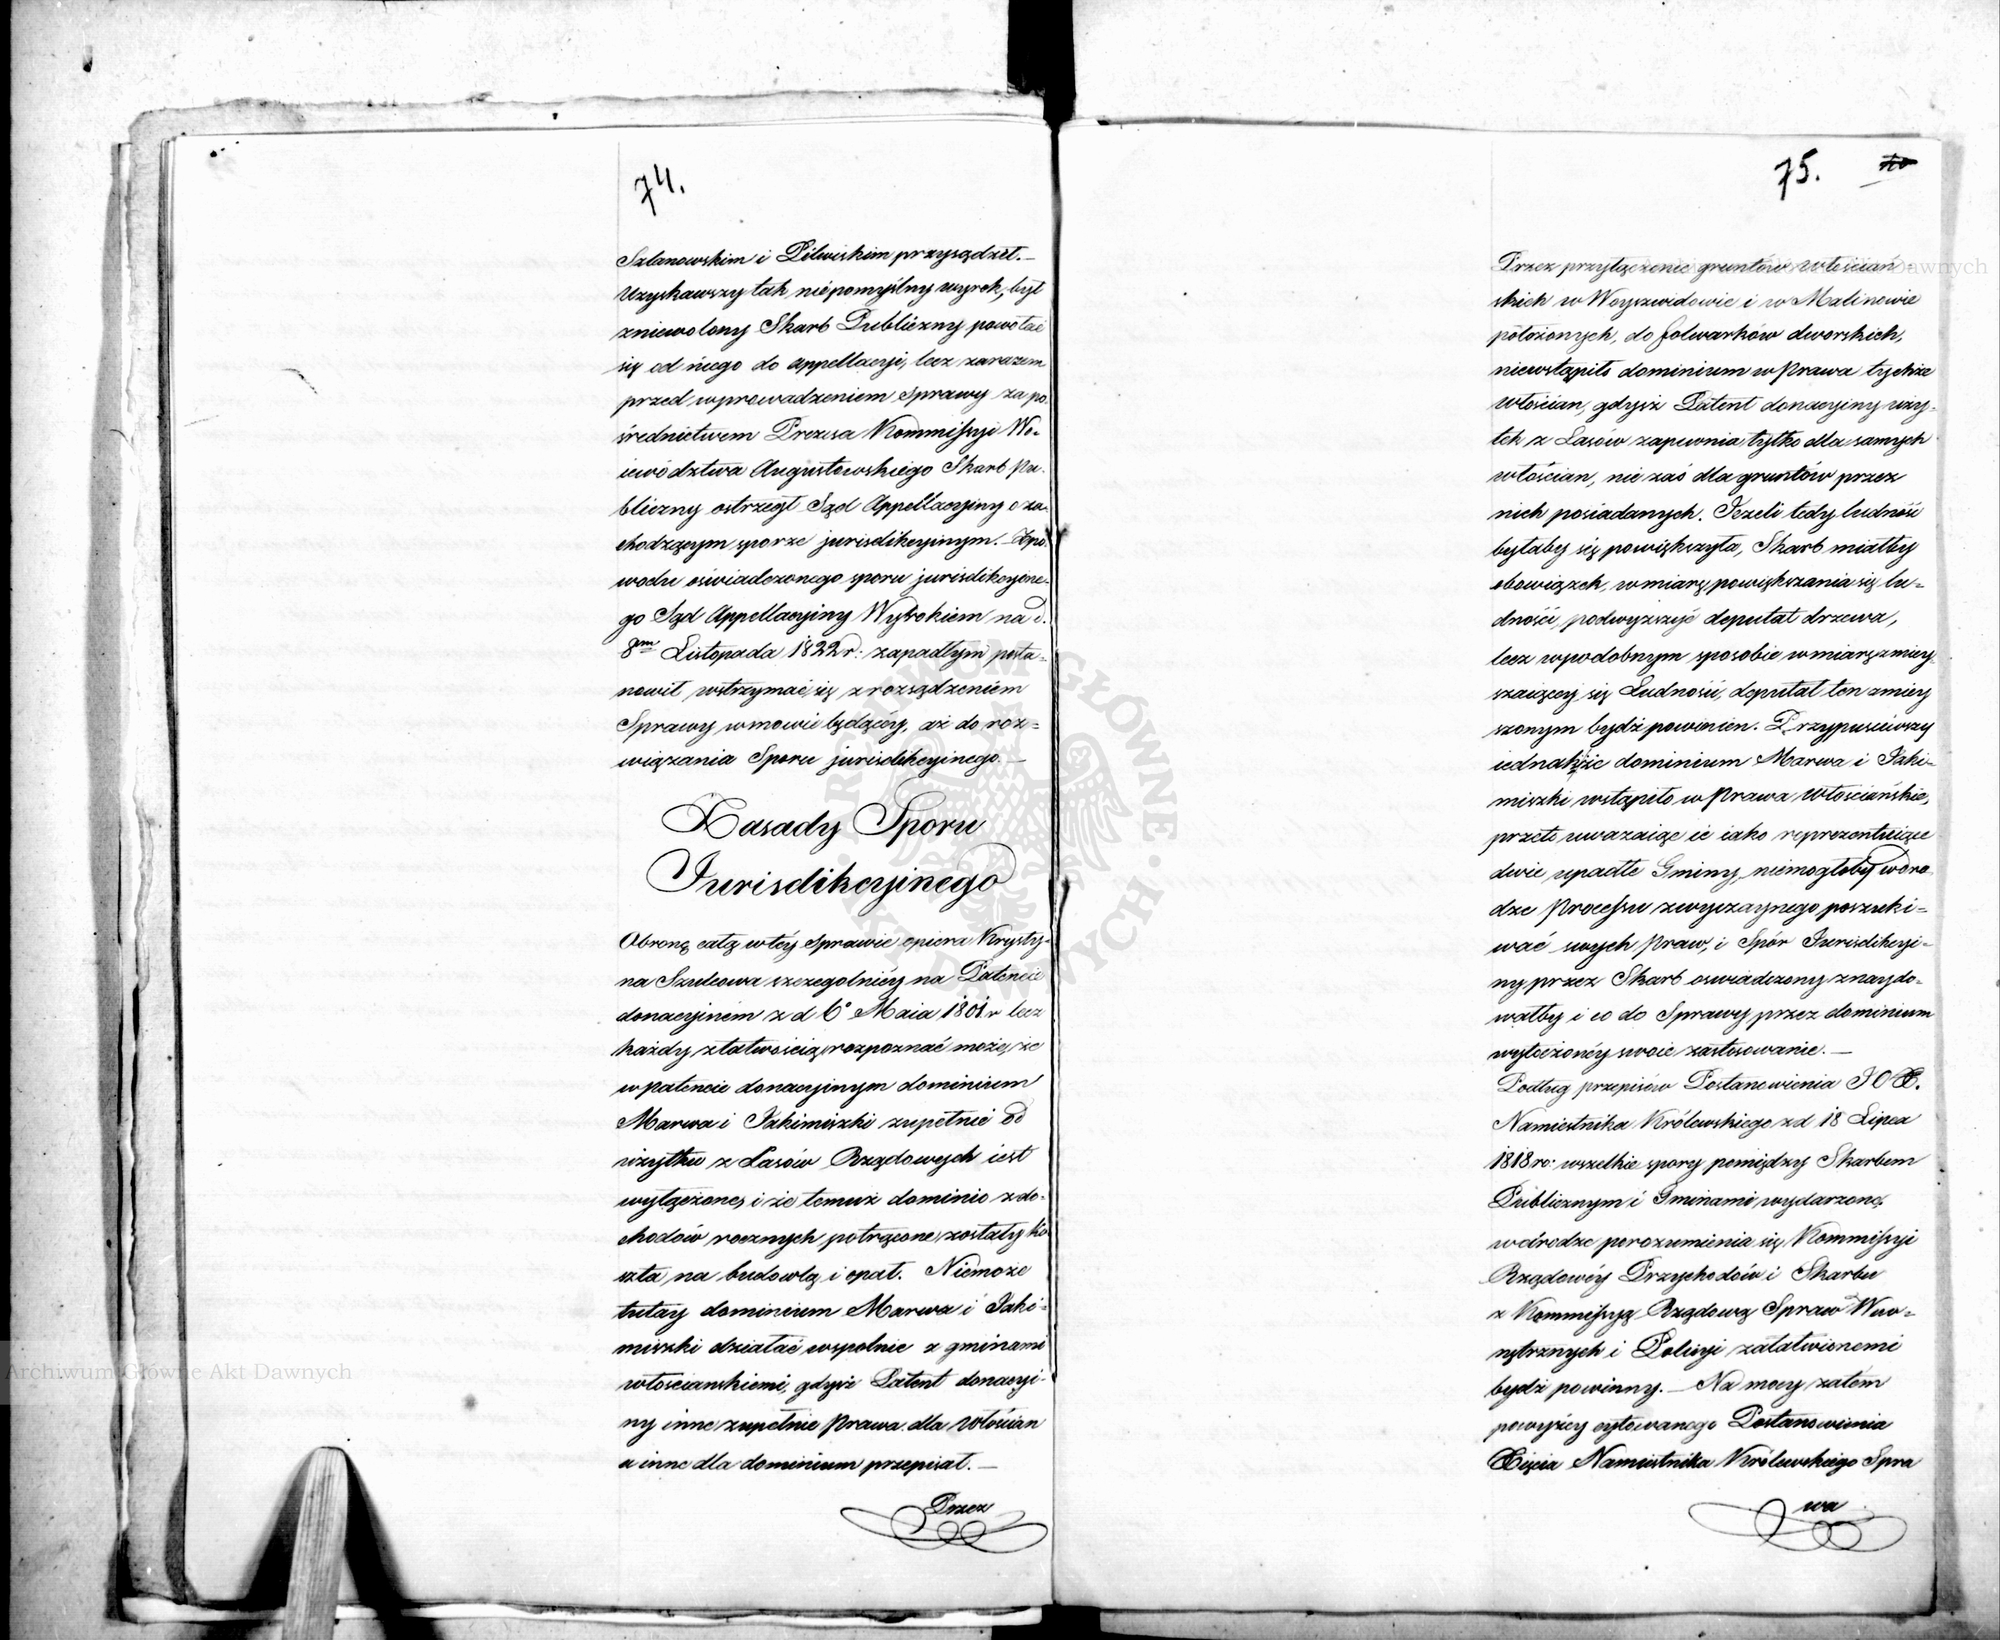 74.
Szlanowskim i Pilwiskim przysądzel. —
Uzyskawszy tak niépomyślny wyrok, był
zniewolony Skarb Publiczny powołać
się od niego do appellacyi, lecz zarazem
przed wprowadzeniem Sprawy za po
średnictwem Prezesa Kommissyi Wo-
iewództwa Augustowskiego Skarb Pu-
bliczny ostrzegł Sąd Appellacyiny o za-
chodzącym sporze jurisdikcyinym. Zpo-
wodu oświadczonego sporu jurisdikcyine-
go Sąd Appellacyiny Wyrokiem na d.
8em Listopada 1822 r: zapadłym posta-
nowił wstrzymać się z rozsądzeniem
Sprawy w mowie będącéy, aż do roz-
wiązania Sporu jurisdikcyinego. —
Zasady Sporu
Jurisdikcyinego
Obronę całą w téy Sprawie opiera Krysty-
na Szulcowa szczególniéy na Patencie
donacyiném z d 6o Maia 1801. r lecz
każdy z łatwością rozpoznać może, że
w patencie donacyinym dominium
Marwa i Jakimiszki zupełnie od
użytku z Lasów Rządowych iest
wyłączone, i że temuż dominio z do-
chodów rocznych potrącone zostały ko
szta na budowlę i opał. Niemoże
tutay dominium Marwa i Jaki-
miszki działać wspolnie z gminami
włościanskiemi, gdyż Patent donacyi-
ny inne zupełnie Prawa dla Włościan
a inne dla dominium przepisał. —
Przez
75.
Przez przyłączenie gruntów włościań-
skich w Woyszwidowie i w Malinowie
położonych, do folwarków dworskich,
niewstąpiło dominium w Prawa tychże
włościan, gdyż Patent donacyiny uży-
tek z Lasow zapewnia tylko dla samych
włościan, nie zaś dla gruntów przez
nich posiadanych. Jeżeli tedy ludność
byłaby się powiększyła, Skarb miałby
obowiązek, w miarę powiększania się lu-
dności, podwyższyć deputat drzewa,
lecz w podobnym sposobie w miarę zmiey
szaiącey się Ludności, deputat ten zmiey
szonym bydź powinien. Przypuściwszy
iednakże że dominium Marwa i Jaki-
miszki wstąpiło w Prawa Włościańskie,
przeto uważaiąc ie iako reprezentuiące
dwie upadłe Gminy, niemogłoby w dro
dze Processu zwyczaynego poszuki-
wać swych Praw, i Spór Jurisdikcyi-
ny przez Skarb oswiadczony znaydo-
wałby i co do Sprawy przez dominium
wytoczonéy swoie zastosowanie. —
Podług przepisów Postanowienia JOX.
Namiestnika Królewskiego z d 18 Lipca
1818 ro: wszelkie spory pomiędzy Skarbem
Publicznym i Gminami wydarzone,
w drodze porozumienia się Kommissyi
Rządowéy Przychodów i Skarbu
z Kommissyą Rządową Spraw Wew-
nętrznych i Policyi załatwionemi
bydź powinny. — Na mocy zatém
powyżéy cytowanego Postanowienia
Xięcia Namiestnika Królewskiego Spra
wa
Archiwum Główne Akt Dawnych
Archiwum Główne Akt Dawnych